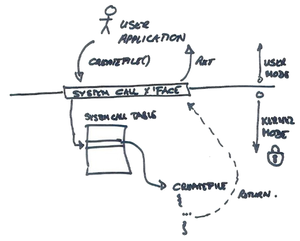 USER
APPLICATION
CREATEFILE()
RET
USER
MODE
SYSTEM CALL I'FACE
KERNEL
MODE
SYSTEM CALL TABLE
CREATEFILE
{
...
}
RETURN.